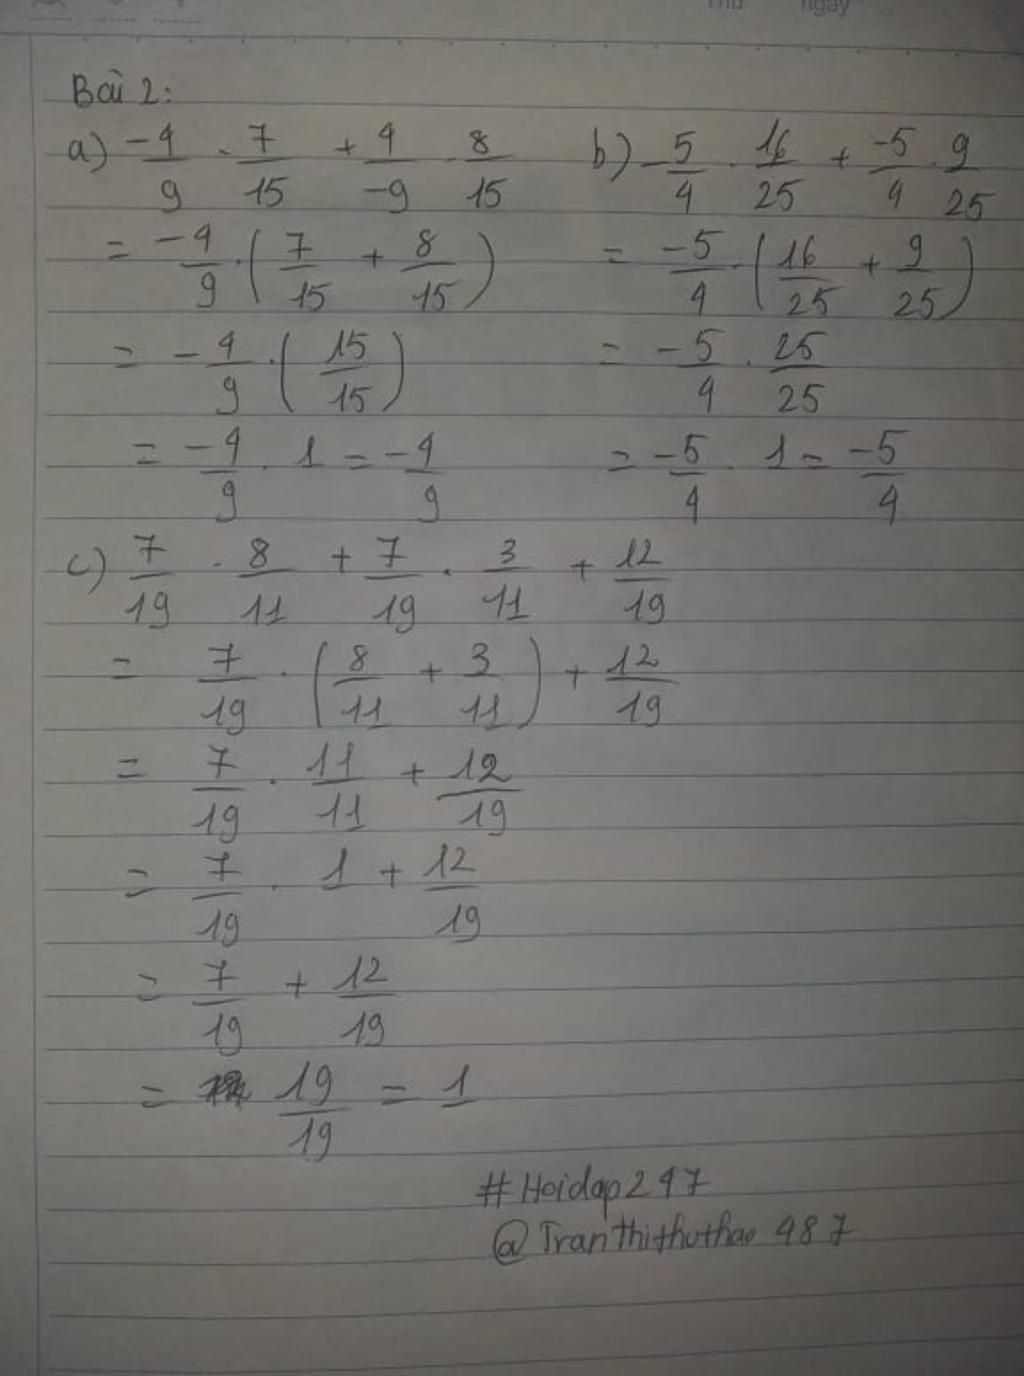 Thứ ngày
Bài 2:
a) -4/9 . 7/15 + 4/-9 . 8/15
= -4/9 . (7/15 + 8/15)
= -4/9 . (15/15)
= -4/9 . 1 = -4/9
b) -5/4 . 16/25 + -5/4 . 9/25
= -5/4 . (16/25 + 9/25)
= -5/4 . 25/25
= -5/4 . 1 = -5/4
c) 7/19 . 8/11 + 7/19 . 3/11 + 12/19
= 7/19 . (8/11 + 3/11) + 12/19
= 7/19 . 11/11 + 12/19
= 7/19 . 1 + 12/19
= 7/19 + 12/19
= 19/19 = 1
#Hoidap247
@Tranthithuthao987